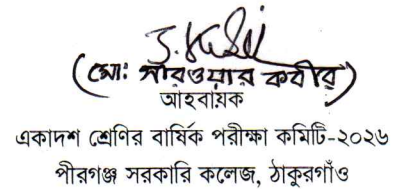 (মো: সারওয়ার কবীর)
আহবায়ক
একাদশ শ্রেণির বার্ষিক পরীক্ষা কমিটি-২০২৬
পীরগঞ্জ সরকারি কলেজ, ঠাকুরগাঁও